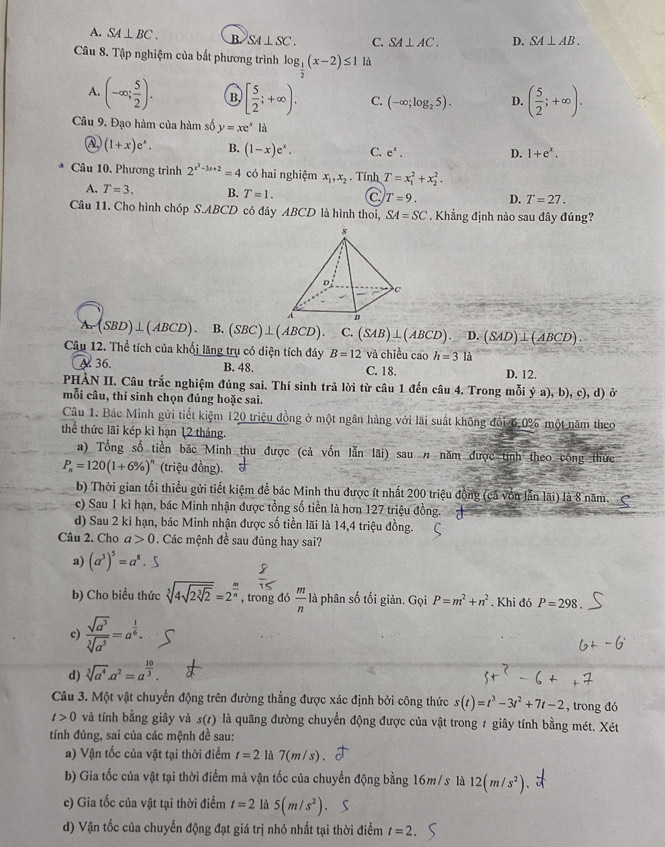 A. SA ⊥ BC. B. SA ⊥ SC. C. SA ⊥ AC. D. SA ⊥ AB.
Câu 8. Tập nghiệm của bất phương trình log_{1/2}(x−2) ≤ 1 là
A. (−∞; 5/2). B. [5/2; +∞). C. (−∞; log₂ 5). D. (5/2; +∞).
Câu 9. Đạo hàm của hàm số y = xe^x là
A. (1+x)e^x. B. (1−x)e^x. C. e^x. D. 1+e^x.
Câu 10. Phương trình 2^{x²−3x+2} = 4 có hai nghiệm x₁, x₂. Tính T = x₁² + x₂².
A. T = 3. B. T = 1. C. T = 9. D. T = 27.
Câu 11. Cho hình chóp S.ABCD có đáy ABCD là hình thoi, SA = SC. Khẳng định nào sau đây đúng?
S
D
C
A
B
A. (SBD) ⊥ (ABCD). B. (SBC) ⊥ (ABCD). C. (SAB) ⊥ (ABCD). D. (SAD) ⊥ (ABCD).
Câu 12. Thể tích của khối lăng trụ có diện tích đáy B = 12 và chiều cao h = 3 là
A. 36. B. 48. C. 18. D. 12.
PHẦN II. Câu trắc nghiệm đúng sai. Thí sinh trả lời từ câu 1 đến câu 4. Trong mỗi ý a), b), c), d) ở
mỗi câu, thí sinh chọn đúng hoặc sai.
Câu 1. Bác Minh gửi tiết kiệm 120 triệu đồng ở một ngân hàng với lãi suất không đổi 6,0% một năm theo
thể thức lãi kép kì hạn 12 tháng.
a) Tổng số tiền bác Minh thu được (cả vốn lẫn lãi) sau n năm được tính theo công thức
P_n = 120(1+6%)^n (triệu đồng). đ
b) Thời gian tối thiểu gửi tiết kiệm để bác Minh thu được ít nhất 200 triệu đồng (cả vốn lẫn lãi) là 8 năm. S
c) Sau 1 kì hạn, bác Minh nhận được tổng số tiền là hơn 127 triệu đồng. đ
d) Sau 2 kì hạn, bác Minh nhận được số tiền lãi là 14,4 triệu đồng. S
Câu 2. Cho a > 0. Các mệnh đề sau đúng hay sai?
a) (a³)⁵ = a⁸. S
8/15
b) Cho biểu thức ⁵√(4√(2∛2)) = 2^{m/n}, trong đó m/n là phân số tối giản. Gọi P = m² + n². Khi đó P = 298. S
c) √(a³)/∛(a⁵) = a^{1/6}. S
6t − 6
d) ∛(a⁴).a² = a^{10/3}. đ
3t² − 6t + 7
Câu 3. Một vật chuyển động trên đường thẳng được xác định bởi công thức s(t) = t³ − 3t² + 7t − 2, trong đó
t > 0 và tính bằng giây và s(t) là quãng đường chuyển động được của vật trong t giây tính bằng mét. Xét
tính đúng, sai của các mệnh đề sau:
a) Vận tốc của vật tại thời điểm t = 2 là 7(m/s). đ
b) Gia tốc của vật tại thời điểm mà vận tốc của chuyển động bằng 16m/s là 12(m/s²). đ
c) Gia tốc của vật tại thời điểm t = 2 là 5(m/s²). S
d) Vận tốc của chuyển động đạt giá trị nhỏ nhất tại thời điểm t = 2. S